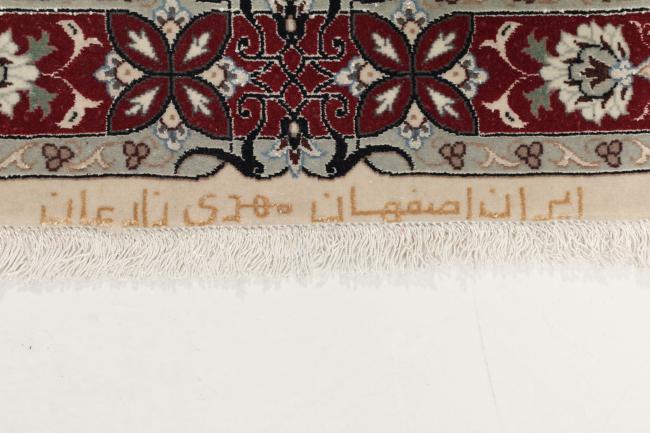 ایران اصفهان مهدی نادرعلیان